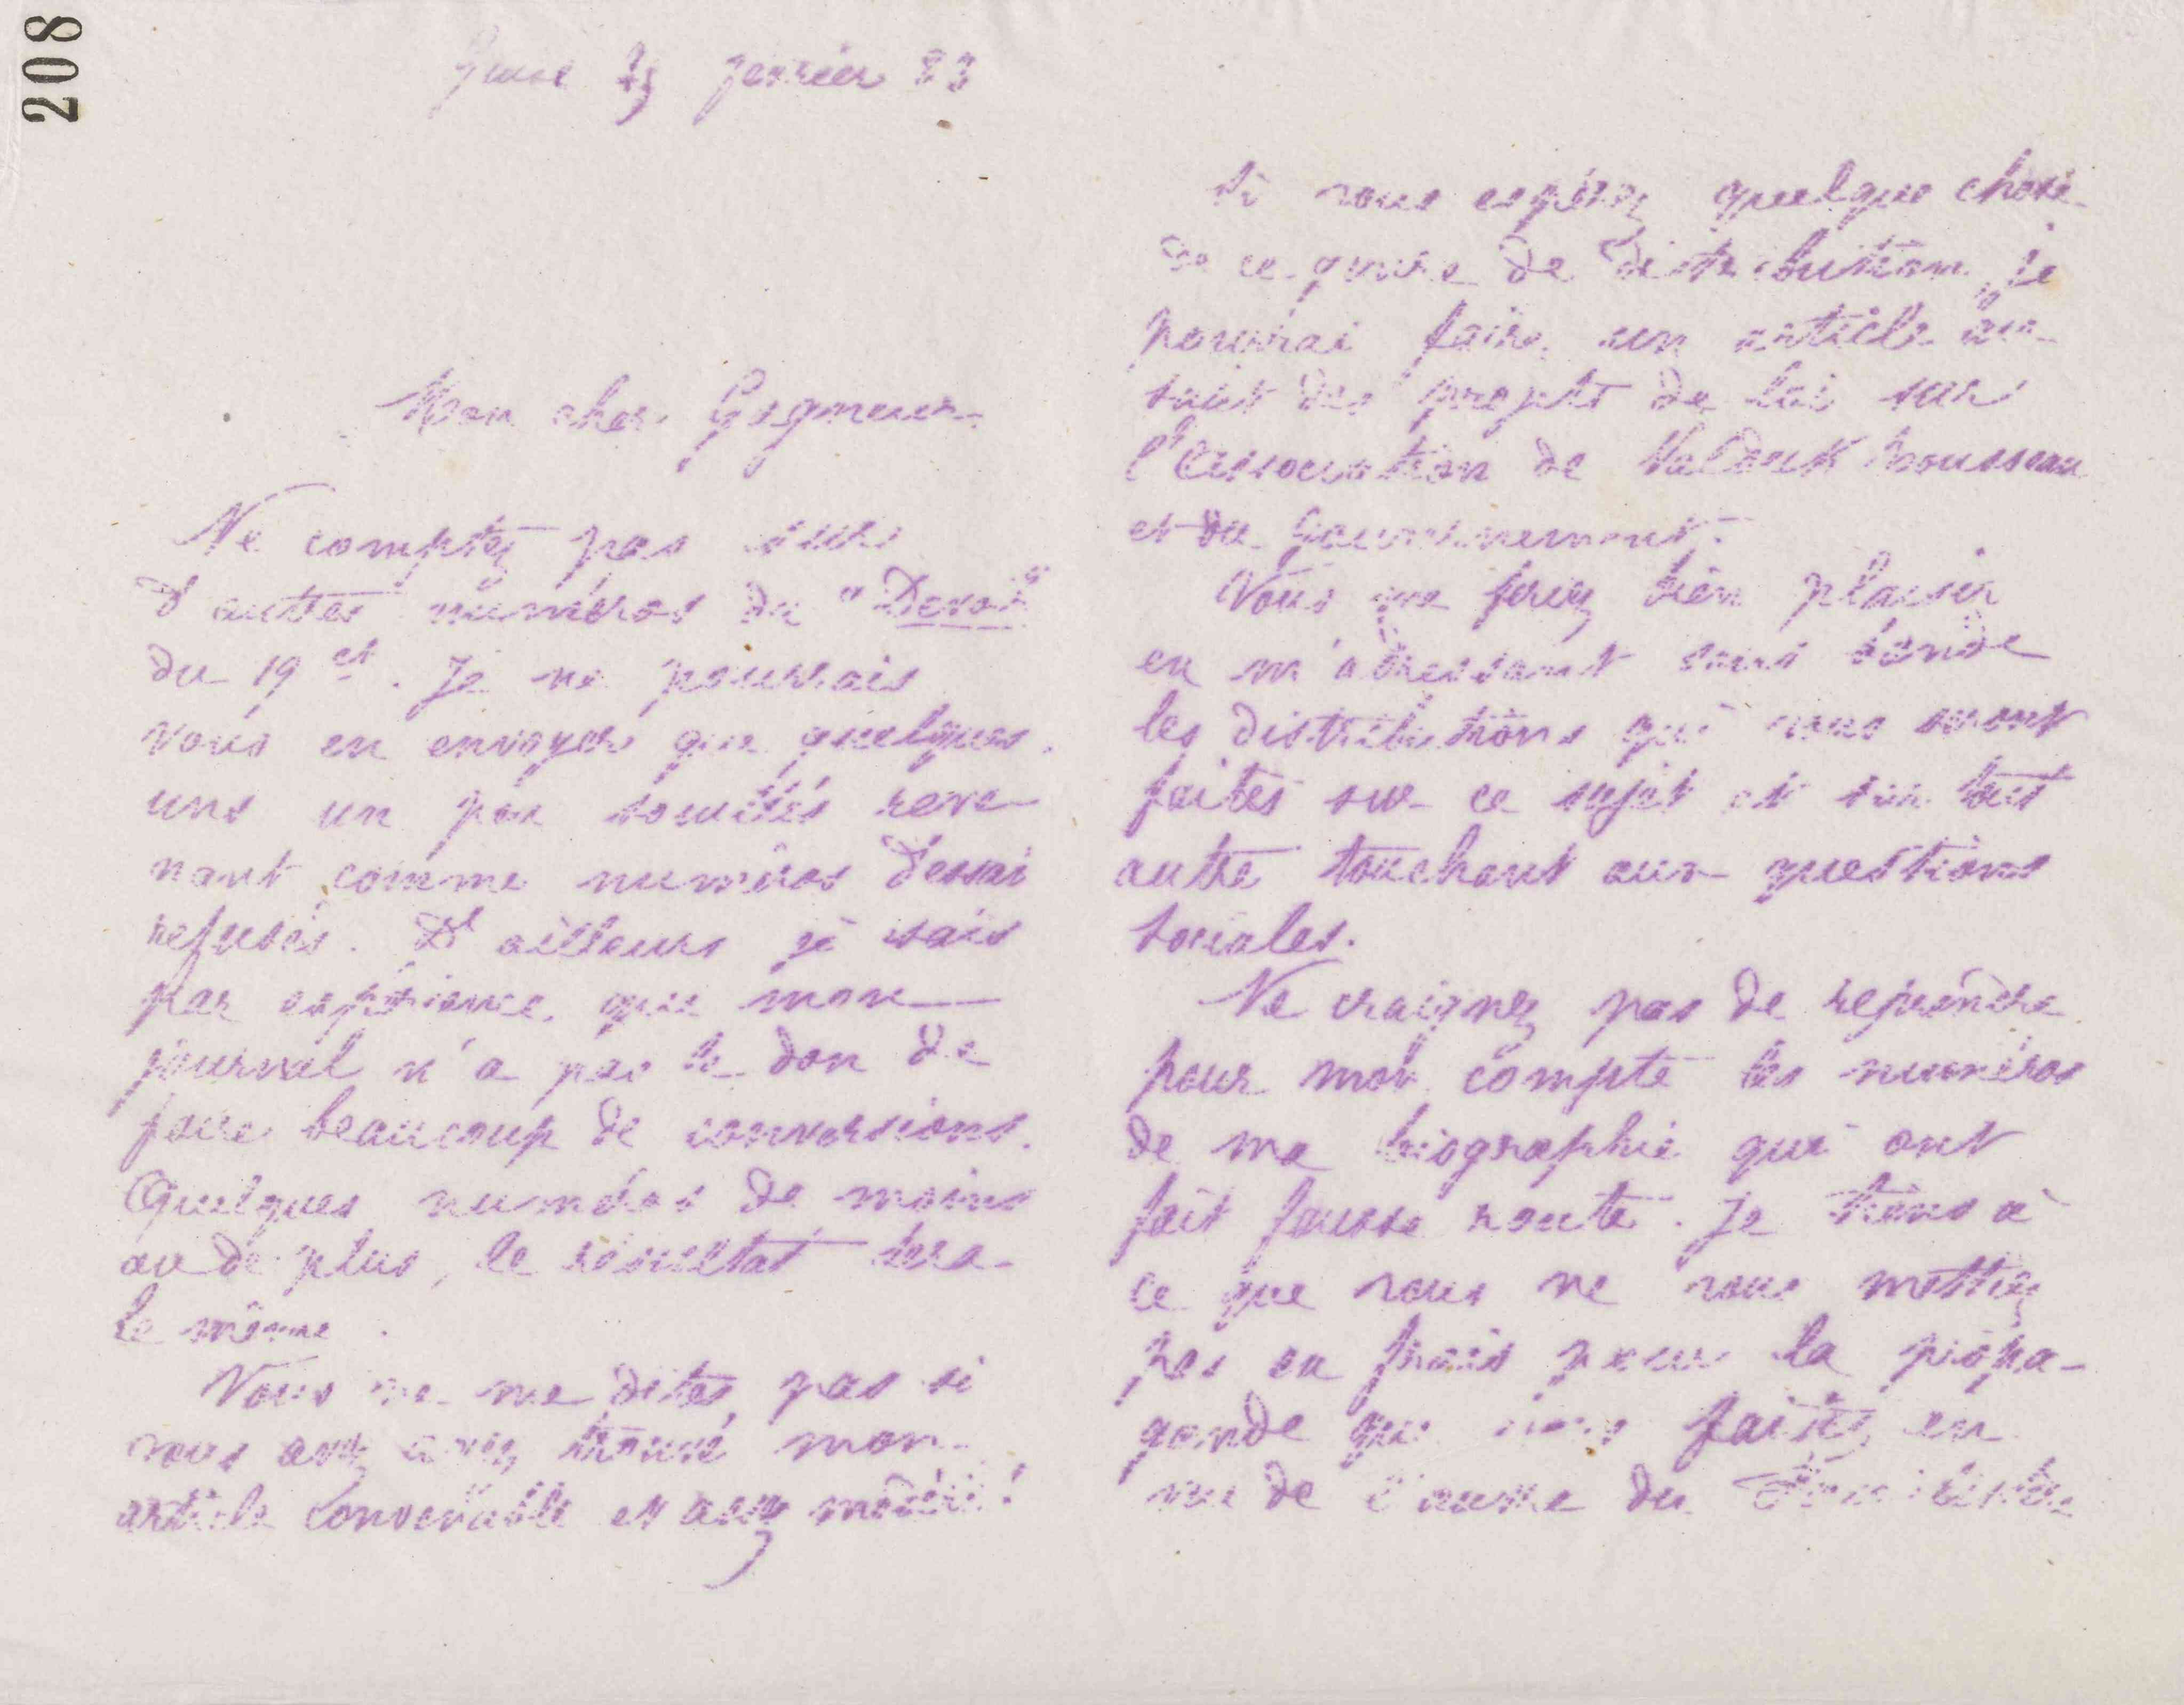 208
Guise 25 février 83
Mon cher Gagneur
Ne comptez pas sur
d'autres numéros du "Devoir"
du 19 ct. Je ne pourrais
vous en envoyer que quelques
uns un peu souillés reve-
nant comme numéros d'essai
refusés. D'ailleurs je sais
par expérience, que mon
journal n'a pas le don de
faire beaucoup de conversions.
Quelques numéros de moins
ou de plus, le résultat sera
le même.
Vous ne me dites pas si
vous avez trouvé mon
article convenable et assez modéré!
Si vous espérez quelque chose
de ce genre de distribution, je
pourrai faire un article au
sujet des projets de loi sur
l'association de Valdeck Rousseau
et du Gouvernement.
Vous me feriez bien plaisir
en m'adressant sous bande
les distributions qui vous seront
faites sur ce sujet et sur tout
autre touchant aux questions
sociales.
Ne craignez pas de reprendre
pour mon compte les numéros
de ma biographie qui ont
fait fausse route. Je tiens à
ce que vous ne vous mettiez
pas en frais pour la propa-
gande que vous faites en
vue de l'œuvre du Familistère